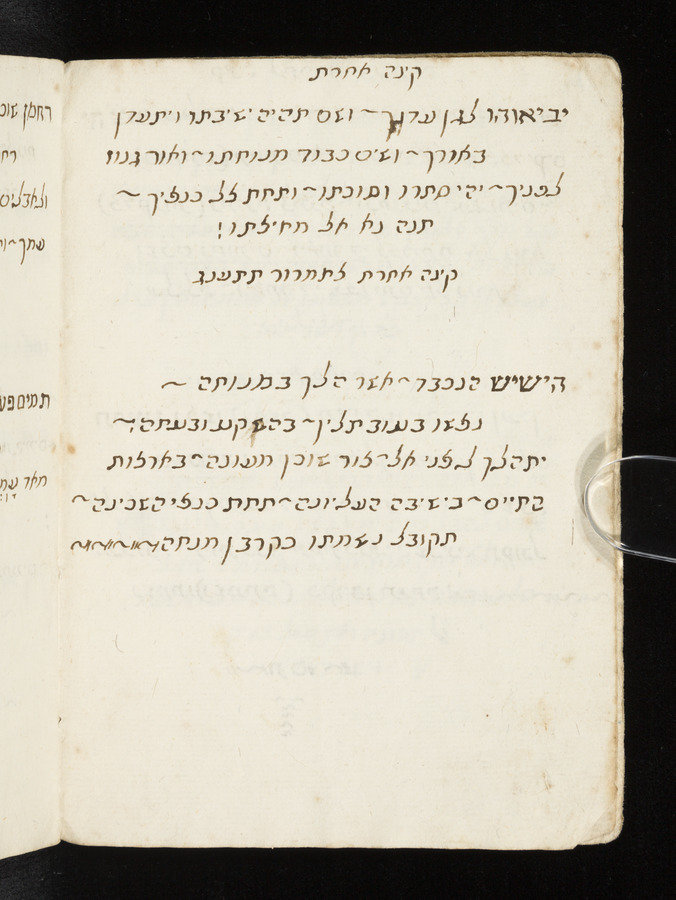 קינה אחרת
יביאוהו לגן עדנך ~ ושם תהיה ישיבתו ויתעדן
באורך ~ ושים כבוד מנוחתו ~ ואור גנוז
לפניך ~ יהי סתרו וסוכתו ~ ותחת צל כנפיך ~
תנה נא אל מחילתו!
קינה אחרת לתמרור תתענג
הישיש הנכבד ~ אשר הלך במנוחה ~
נפשו בעובת לין ~ ובעתה:~
יתהלך לפני אל ~ צור שוכן מעונה ~ בארצות
החיים ~ בישיבה העליונה ~ תחת כנפי השכינה ~
תקובל נשמתו כקרבן מנחה
רחמן שוכ
רח
עמך
תמים פע